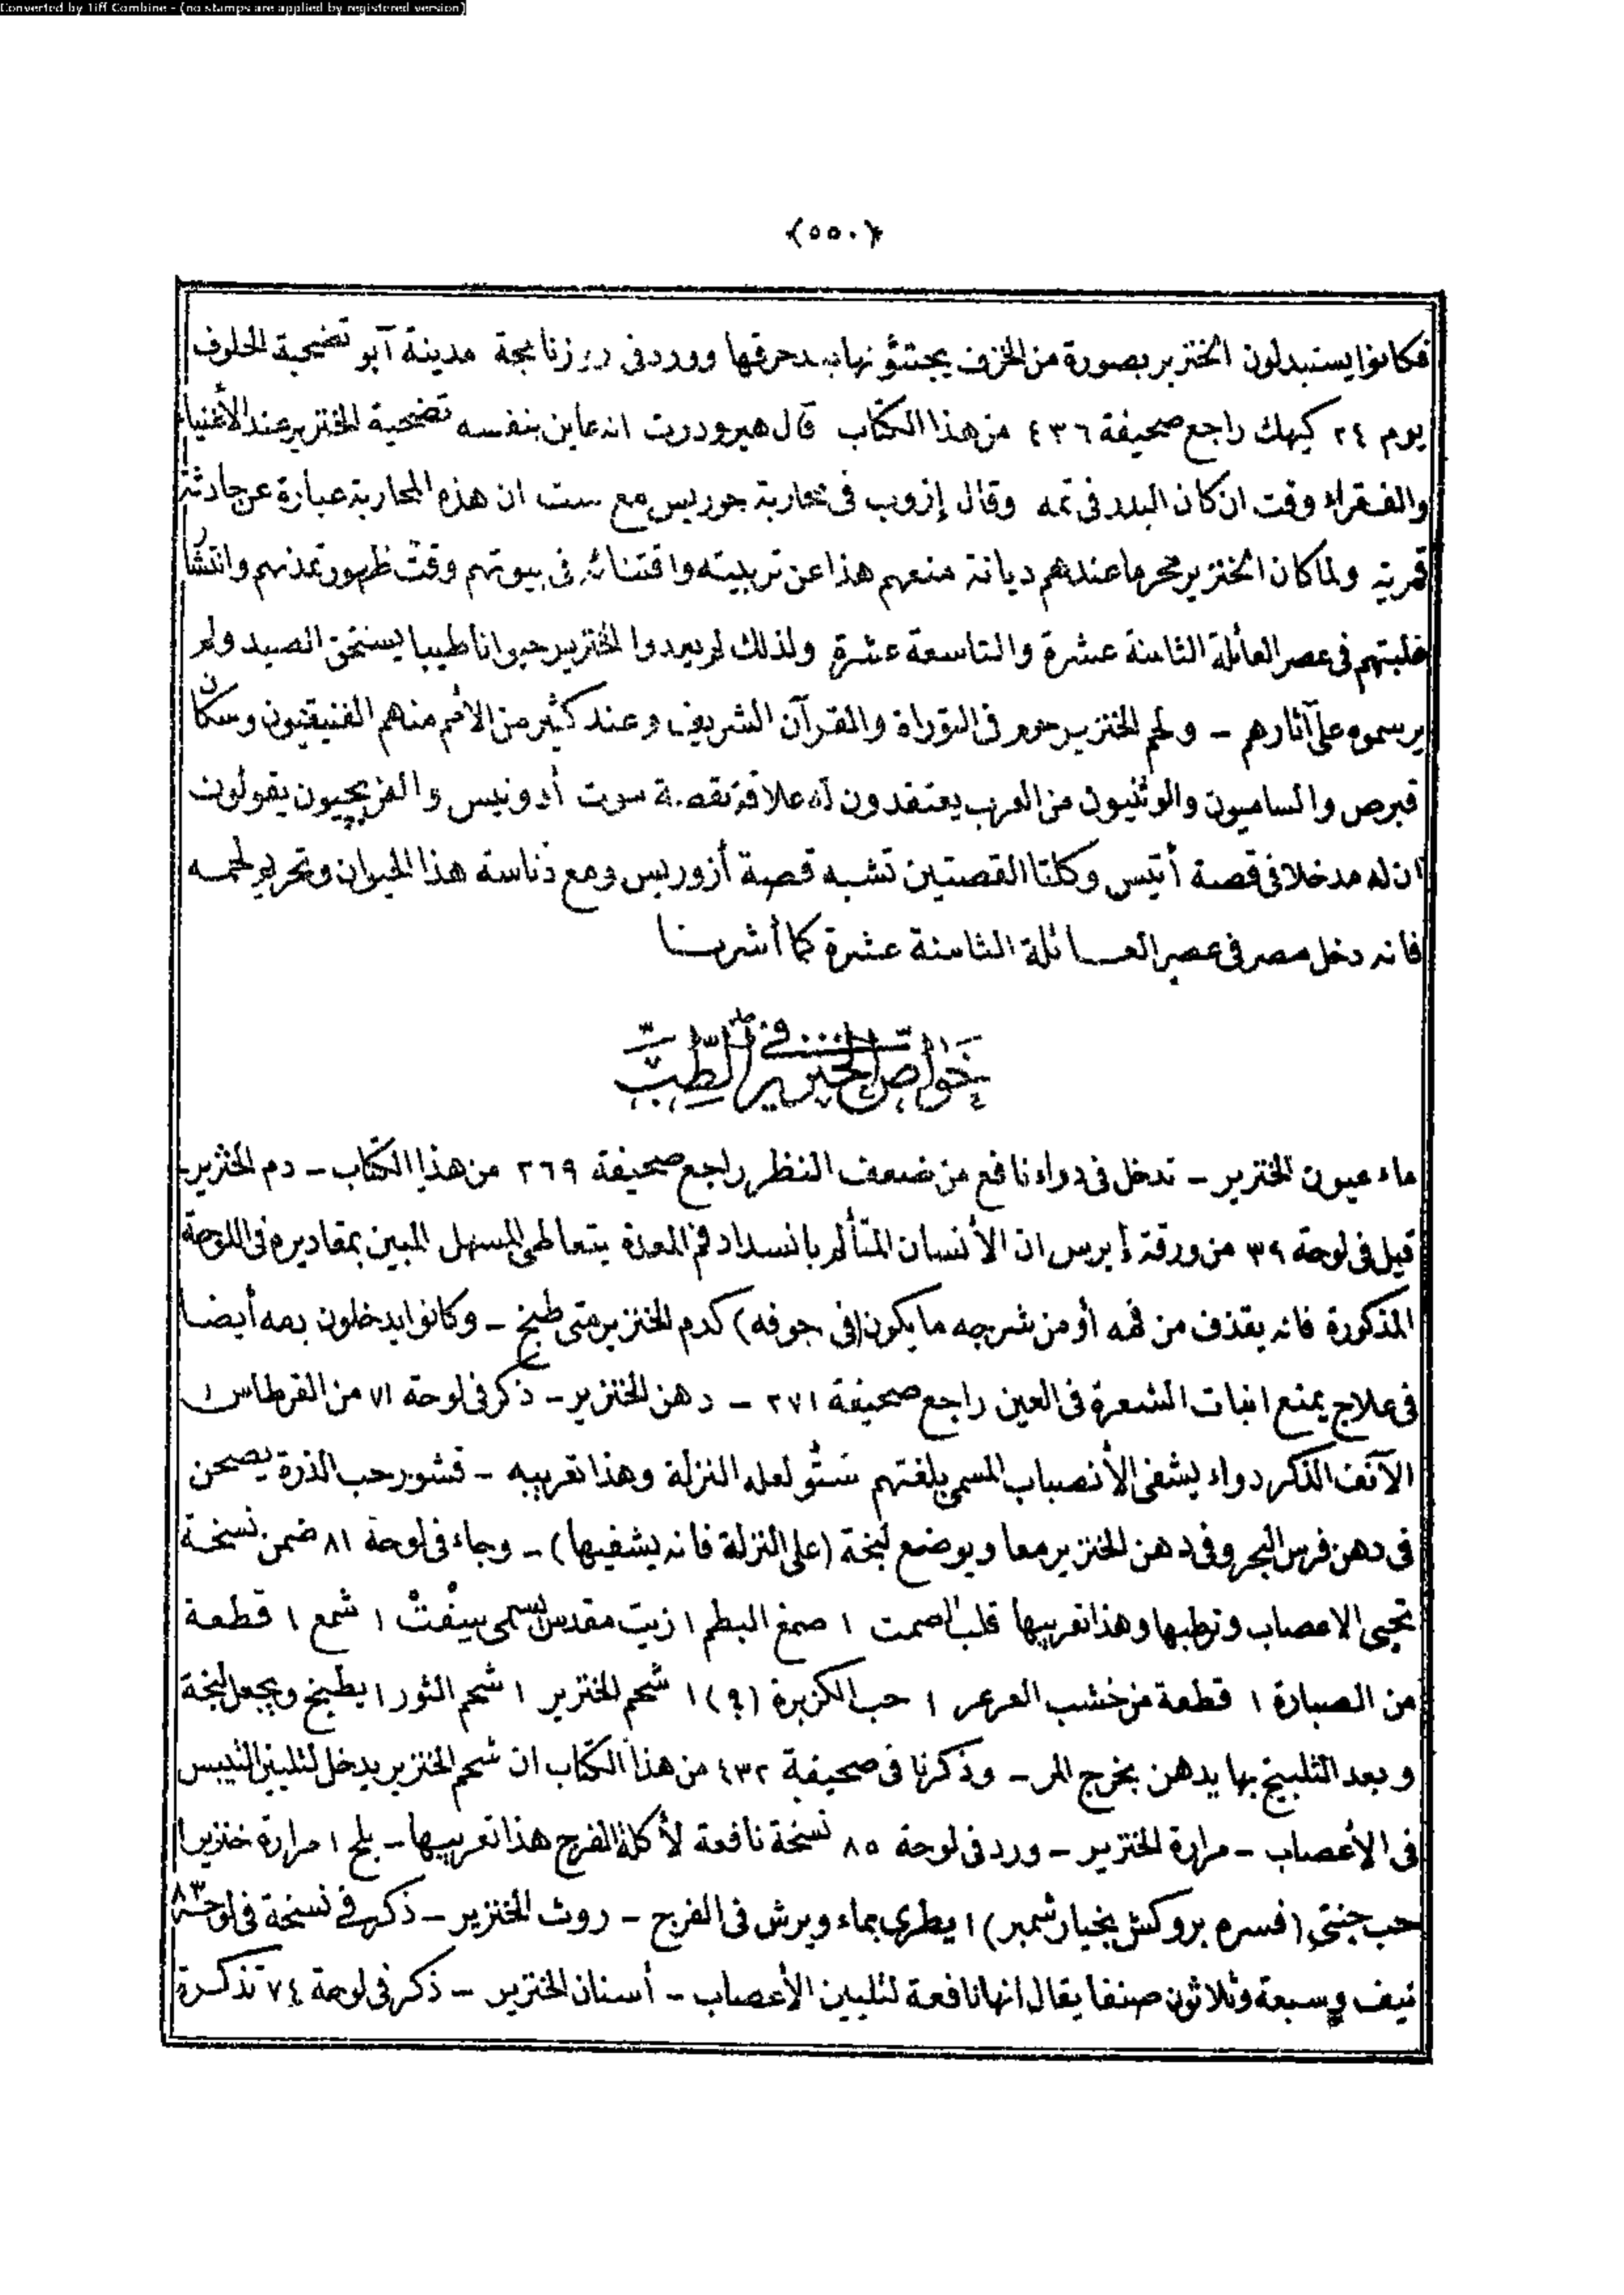 Converted by Tiff Combine - (no stamps are applied by registered version)
﴿٥٥٠﴾
فكانوا يستبدلون الخنزير بصورة من الخزف يجتنئونها بعد حرقها وورد في روزنامجة مدينة آبو تضحية الحلوف
يوم ٢٤ كيهك راجع صحيفة ٤٣٦ من هذا الكتاب قال هيرودوت انه عاين بنفسه تضحية الخنزير عند الأغنياء
والفقراء وقت ان كان البدر في تمه وقال إزوب في محاربة حوريس مع ست ان هذه المحاربة عبارة عن حادثة
قمرية ولما كان الخنزير محرما عندهم ديانة منعهم هذا عن تربيته واقتنائه في بيوتهم وقت ظهور تمدنهم وانتشا
غلبتهم في عصر العائلة الثامنة عشرة والتاسعة عشرة ولذلك لم يعدوا الخنزير حيوانا طيبا يستحق الصيد ولم
يرسموه على آثارهم - ولحم الخنزير حرم في التوراة والقرآن الشريف وعند كثير من الأمم منهم الفنيقيون وسكان
قبرص والساميون والوثنيون من العرب يعتقدون له علاقة بقصة موت أدونيس والفريجيون يقولون
ان له مدخلا في قصة أتيس وكلتا القصتين تشبه قصة أزوريس ومع دناسة هذا الحيوان وتحريم لحمه
فانه دخل مصر في عصر العائلة الثامنة عشرة كما أشرنا
خواص الخنزير في الطب
ماء عيون الخنزير - تدخل في دواء نافع من ضعف النظر راجع صحيفة ٢٦٩ من هذا الكتاب - دم الخنزير -
قيل في لوحة ٣٩ من ورقة إبرس ان الأنسان المتألم بانسداد فم المعدة يتعاطى المسهل المبين بمقاديره في اللوحة
المذكورة فانه يقذف من فمه أو من شرجه ما يكون (في جوفه) كدم الخنزير متى طبخ - وكانوا يدخلون دمه أيضا
في علاج يمنع انبات الشعرة في العين راجع صحيفة ٢٧١ - دهن الخنزير - ذكر في لوحة ٧١ من القرطاس
الآنف الذكر دواء يشفى الأنصباب المسمى بلغتهم لعله النزلة وهذا تعريبه - قشور حب الذرة يصحن
في دهن فرس البحر وفي دهن الخنزير معا ويوضع لبخة (على النزلة فانه يشفيها) - وجاء في لوحة ٨١ ضمن نسخة
تحيى الاعصاب وترطبها وهذا تعريبها قلب الصمت ١ صمغ البطم ١ زيت مقدس يسمى سيفت ١ شمع ١ قطعة
من الصبارة ١ قطعة من خشب العرعر ١ حب الكزبرة (؟) ١ شحم الخنزير ١ شحم الثور ١ يطبخ ويجعل لبخة
وبعد التلبيخ بها يدهن بخرج المر - وذكرنا في صحيفة ٤٣٢ من هذا الكتاب ان شحم الخنزير يدخل لتليين التيبس
في الأعصاب - مرارة الخنزير - ورد في لوحة ٨٥ نسخة نافعة لأكلة الفرج هذا تعريبها - بلح ١ مرارة خنزير ١
حب جنتي (فسره بروكش بخيار شمبر) ١ يطرى بماء ويرش في الفرج - روث الخنزير - ذكر في نسخة في لوحة ٨٣
نيف وسبعة وثلاثون صنفا يقال انها نافعة لتليين الأعصاب - أسنان الخنزير - ذكر في لوحة ٧٤ تذكرة